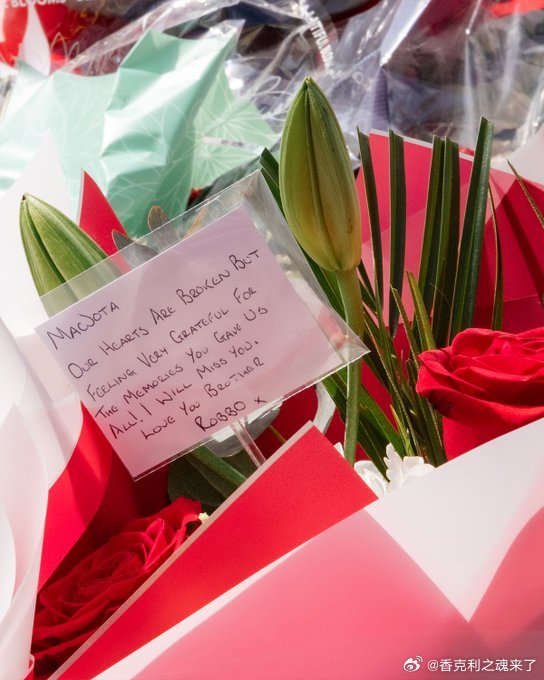 BLOOMS
MAWJOTA
OUR HEARTS ARE BROKEN BUT
FEELING VERY GRATEFUL FOR
THE MEMORIES YOU GAVE US
ALL! I WILL MISS YOU.
LOVE YOU BROTHER
ROBBO X
@香克利之魂来了